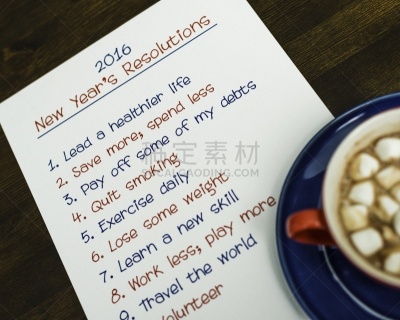 2016
New Year's Resolutions
1. Lead a healthier life
2. Save more, spend less
3. Pay off some of my debts
4. Quit smoking
5. Exercise daily
6. Lose some weight
7. Learn a new skill
8. Work less, play more
9. Travel the world
Volunteer